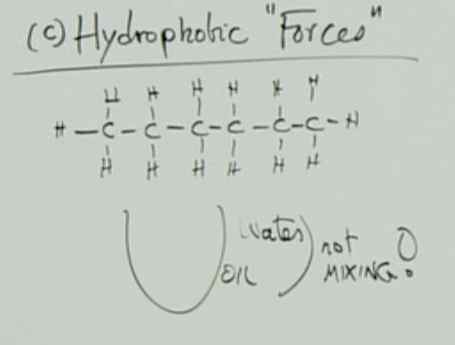 (C) Hydrophobic "Forces"
H H H H H H
H-C-C-C-C-C-C-H
H H H H H H
Water) not
OIL MIXING!